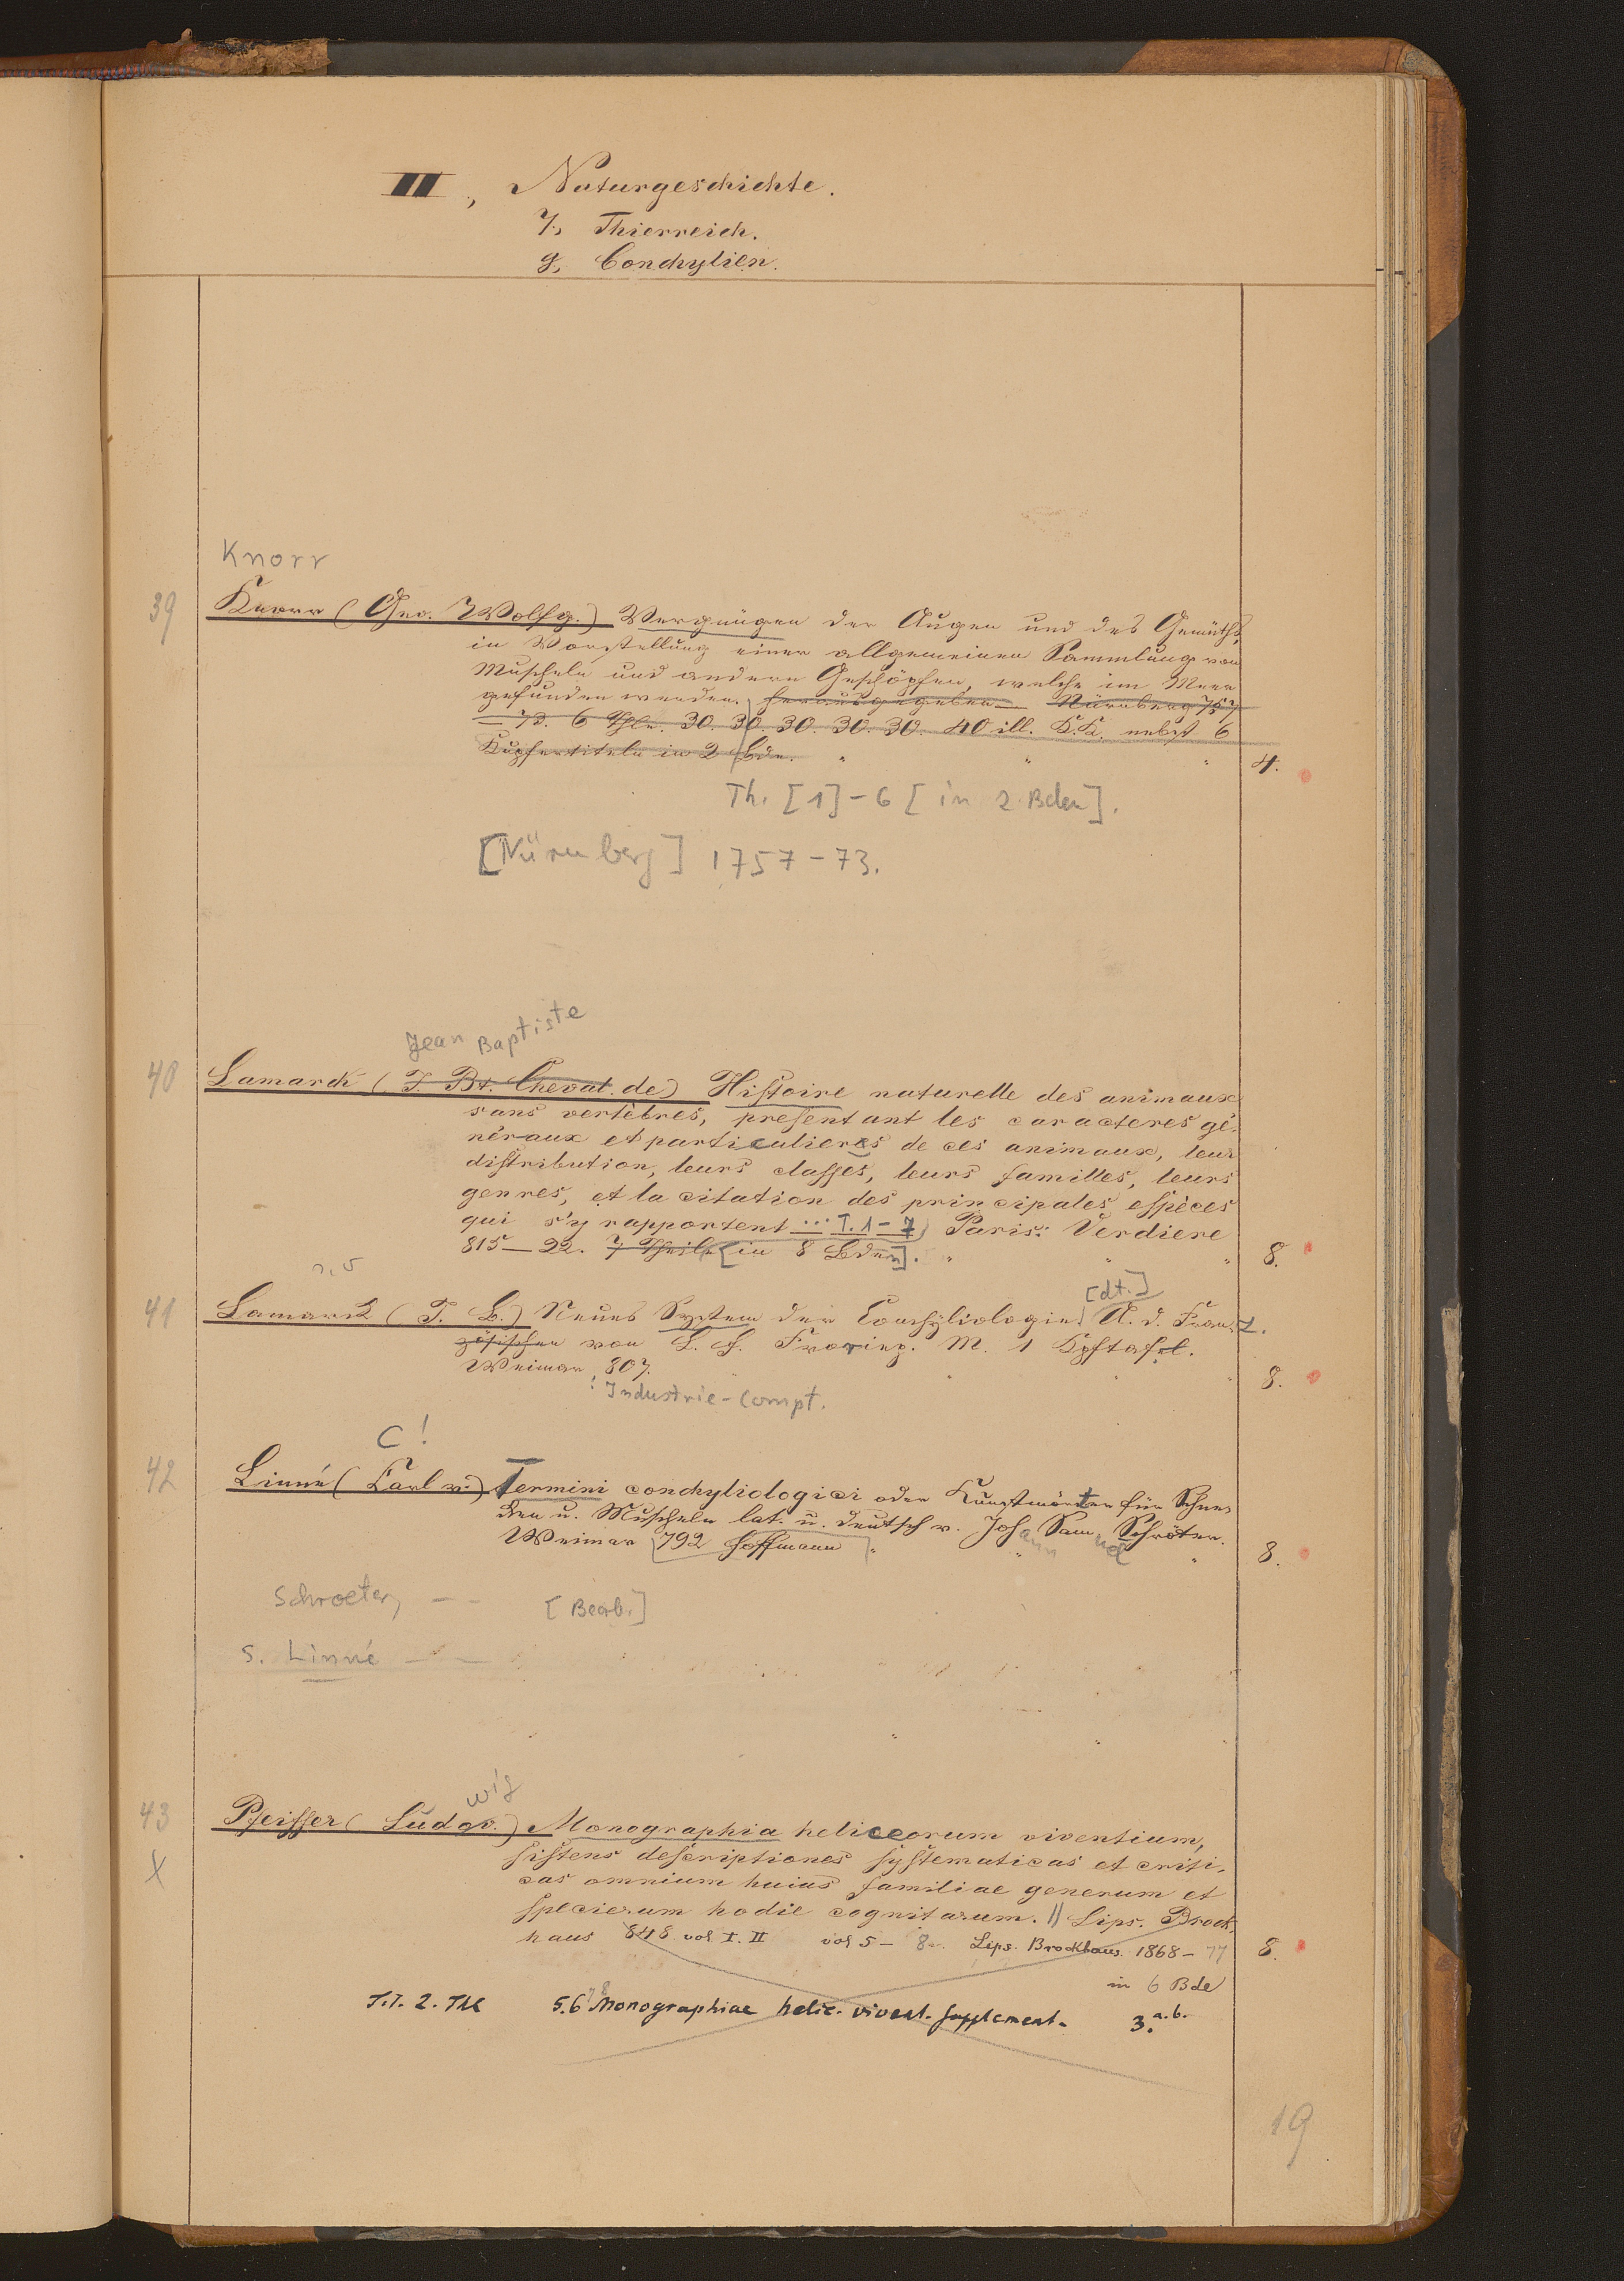 III, Naturgeschichte.
7, Thierreich.
g, Conchylien.
Knorr
39 Knorr (Geo. Wolfg.) Vergnügen der Augen und des Gemüths,
in Vorstellung einer allgemeinen Sammlung von
Muscheln und andern Geschöpfen, welche im Meer
gefunden werden. herausgegeben — Nürnberg 757
— 73. 6 Thle. 30. 30. 30. 30. 30. 40 ill. K.K. nebst 6
Kupfertiteln in 2 Bdn. " " " 4.
Th. [1] - 6 [in 2 Bden].
[Nürnberg] 1757 - 73.
Jean Baptiste
40 Lamarck (J. Bt. Cheval. de) Histoire naturelle des animaux
sans vertèbres, presentant les caracteres gé-
néraux et particuliers de ces animaux, leur
distribution, leurs classes, leurs familles, leurs
genres, et la citation des principales espèces
qui s'y rapportent ... T. 1 - 7 Paris: Verdiere
815 — 22. 7 Theile [in 8 Bden]. " " " 8.
[dt.]
41 Lamarck (J. B.) Neues System der Conchyliologie A. d. Fran- z.
zösischen von L. F. Froriep. M. 1 Kpftafel.
Weimar, 807. " " " 8.
: Industrie-Compt.
C!
42 Linné (Carl v.) Termini conchyliologici oder Kunstwörter für Schne-
cken u. Muscheln lat. u. deutsch v. Johann Samuel Schröter.
Weimar 792 Hoffmann " " " 8.
Schroeter, - - [Bearb.]
s. Linné - -
wig
43 Pfeiffer (Ludov.) Monographia heliceorum viventium,
X sistens descriptiones systematicas et criti-
cas omnium huius familiae generum et
specierum hodie cognitarum. || Lips. Brock-
haus 848 vol I. II vol 5 - 8 Lips. Brockhaus 1868 - 77 8.
in 6 Bde
T.T. 2. Th 5.6 7 8 Monographiae helic. vivent. supplement. 3. a.b.
19